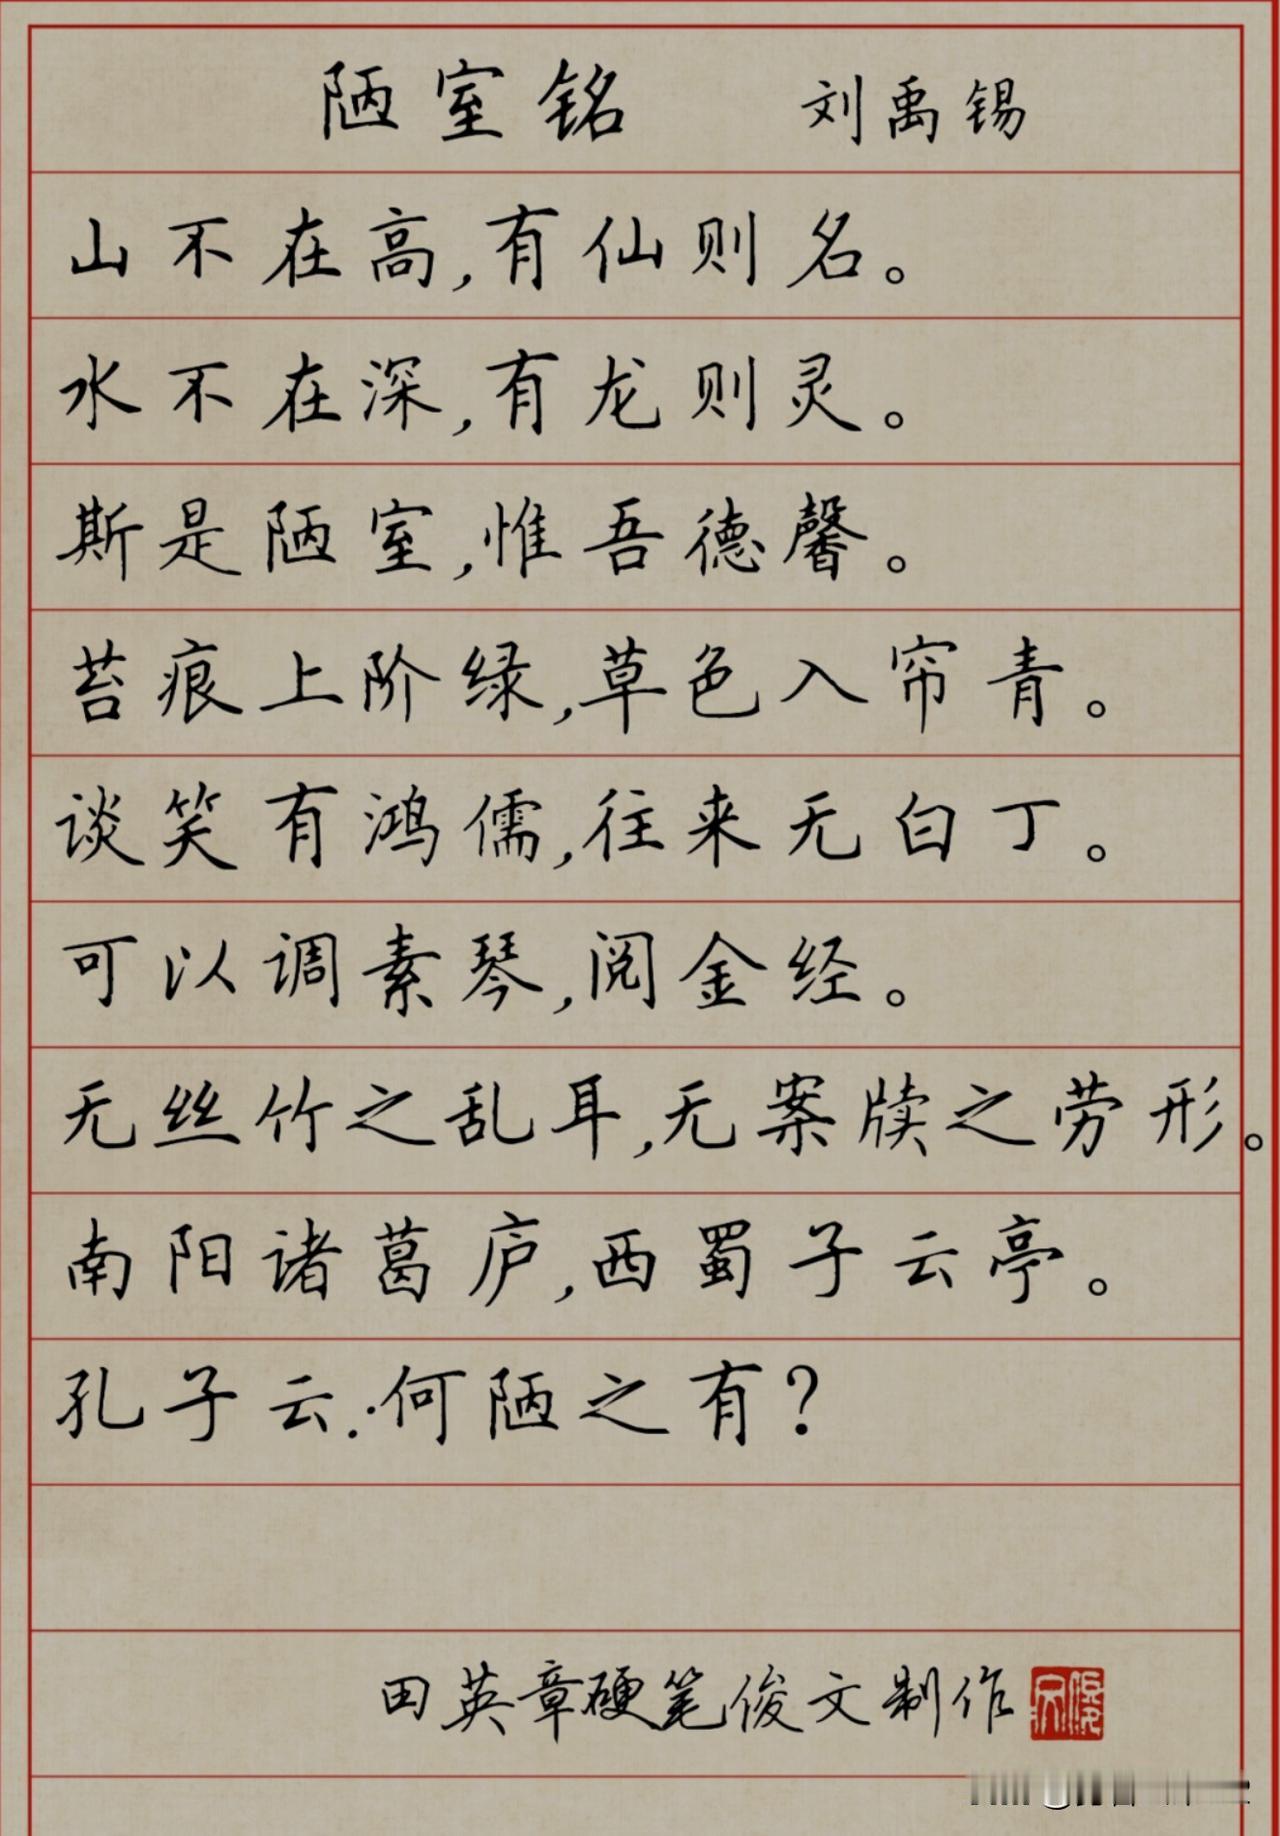 陋室铭 刘禹锡
山不在高,有仙则名。
水不在深,有龙则灵。
斯是陋室,惟吾德馨。
苔痕上阶绿,草色入帘青。
谈笑有鸿儒,往来无白丁。
可以调素琴,阅金经。
无丝竹之乱耳,无案牍之劳形。
南阳诸葛庐,西蜀子云亭。
孔子云:何陋之有?
田英章硬笔俊文制作